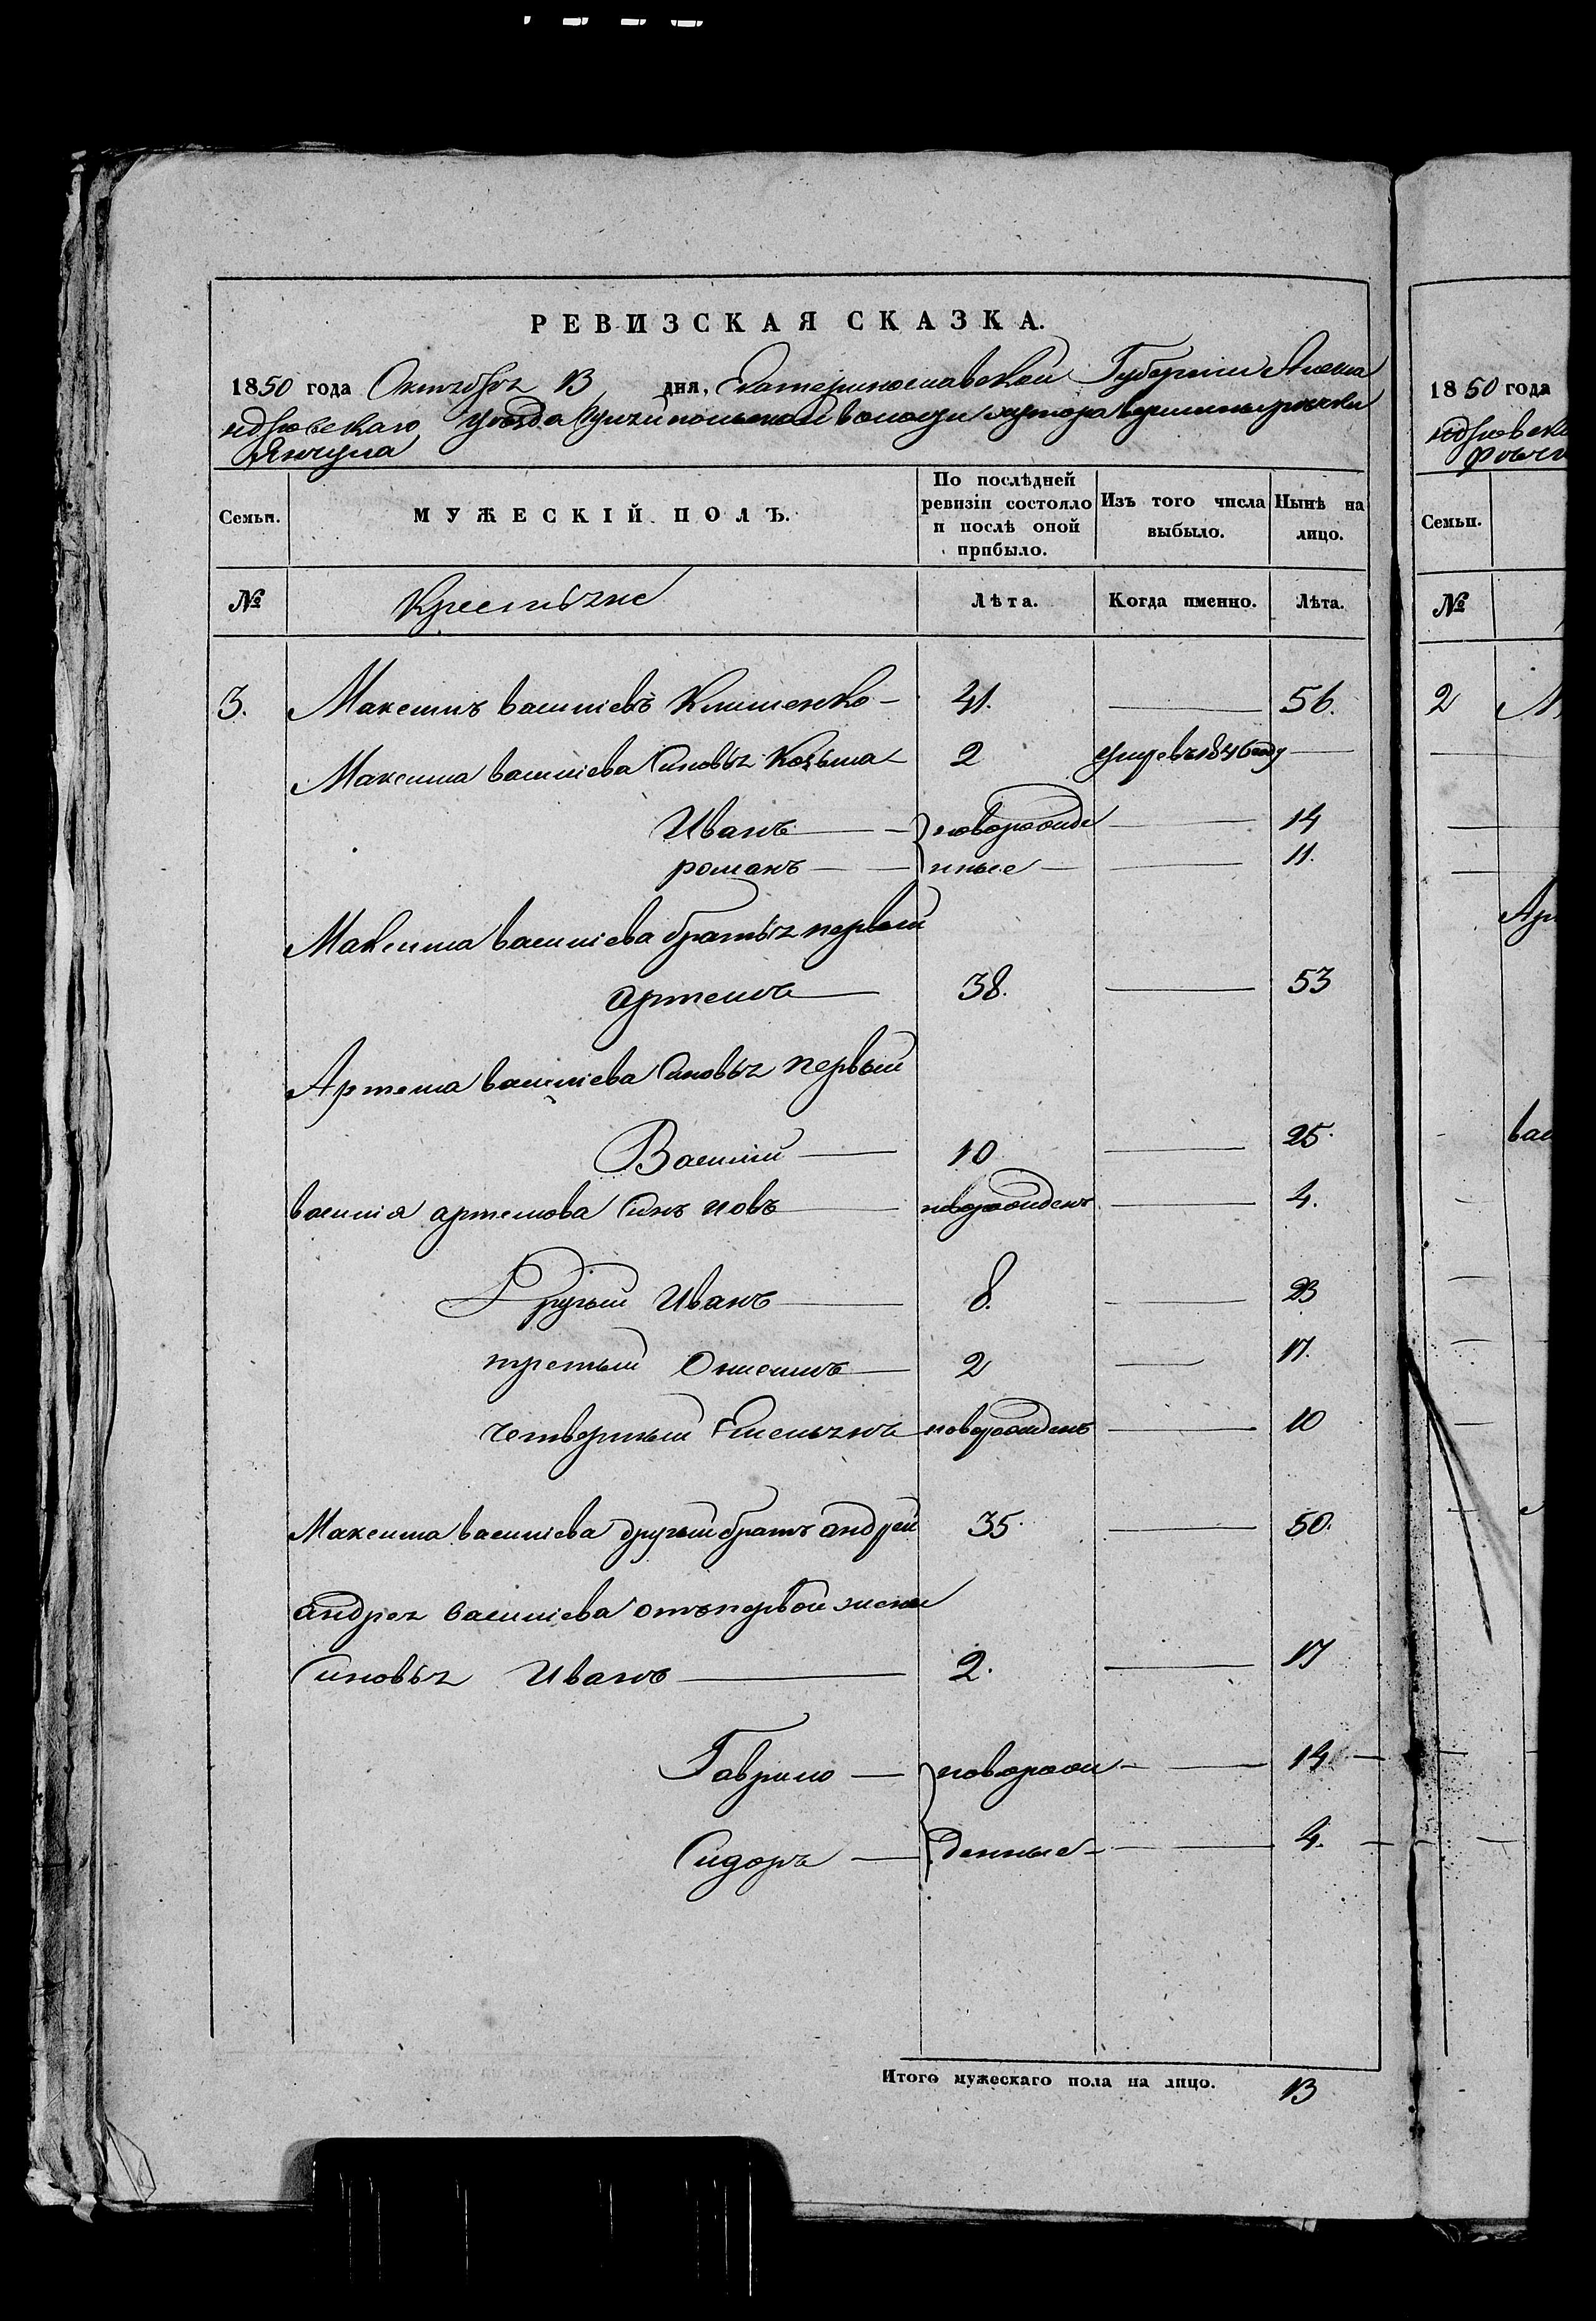 РЕВИЗСКАЯ СКАЗКА.
1850 года Октября 13 дня, Екатеринославской Губерніи Алекса
ндровскаго уѣзда волости хутора вершины рѣчки
Янчула
Семьи. МУЖЕСКІЙ ПОЛЪ. По послѣдней ревизіи состояло и послѣ оной прибыло. Изъ того числа выбыло. Нынѣ на лицо.
№ Крестьяне Лѣта. Когда именно. Лѣта.
3. Максимъ васильевъ Клименко 41. 56.
Максима васильева Сыновья Козьма 2 умре въ 1846 году
Иванъ новорожде 14
романъ нные 11.
Максима васильева братья первый
артемъ 38. 53
Артема васильева Сыновья первый
Василій 10 25.
василія артемова Сынъ иовъ новорожденъ 4.
Другый Иванъ 8. 23
третый Онисимъ 2 17.
четвертый Емельянъ новорожденъ 10
Максима васильева другый братъ андрей 35. 50.
андрея васильева отъ первой жены
Сыновья Иванъ 2. 17
Гаврило новорож 14
Сидоръ денные 4.
Итого мужескаго пола на лицо. 13
1850 года
ндровска
рѣчк
Семьи.
№
2
Арт
вас